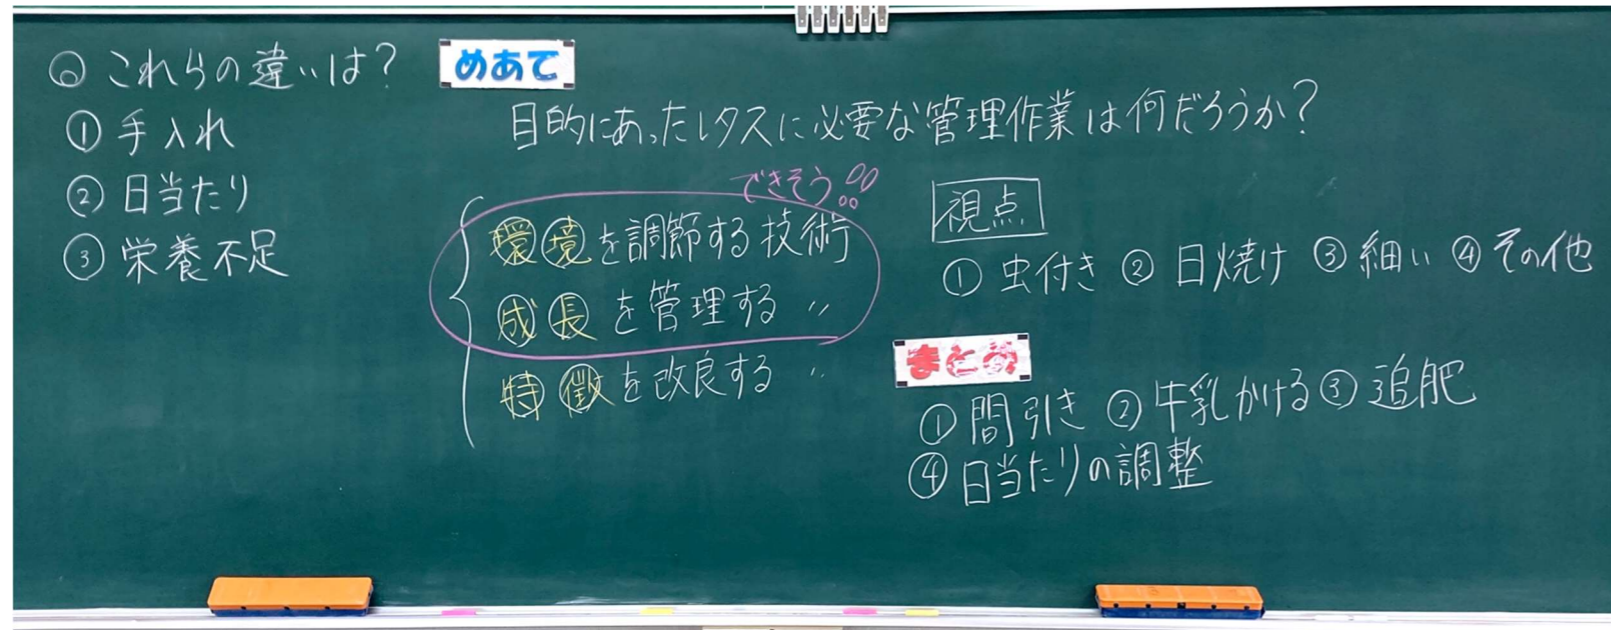 Q これらの違いは？
① 手入れ
② 日当たり
③ 栄養不足
めあて
目的にあったレタスに必要な管理作業は何だろうか？
できそう!!
環境を調節する技術
成長を管理する 〃
特徴を改良する 〃
視点
① 虫付き ② 日焼け ③ 細い ④ その他
まとめ
① 間引き ② 牛乳かける ③ 追肥
④ 日当たりの調整